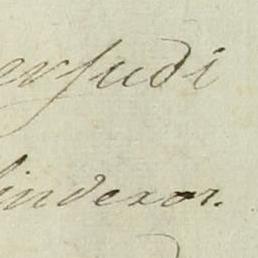 ersudi
lindexor.